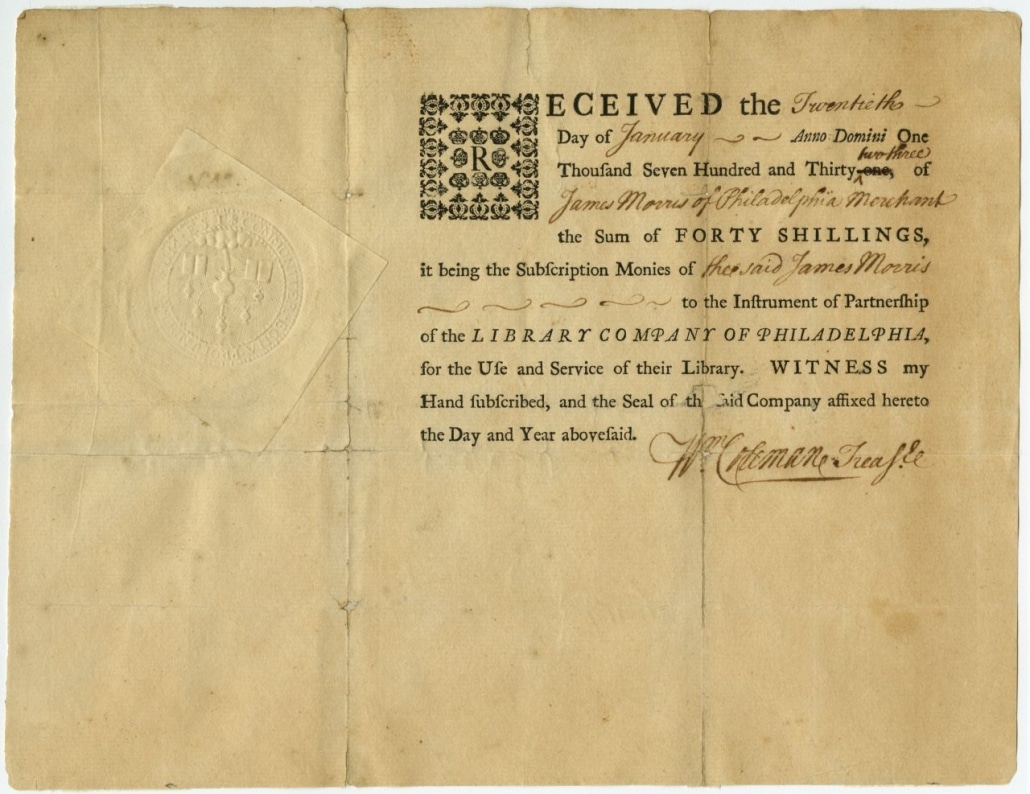 RECEIVED the Twentieth
Day of January Anno Domini One
two three
Thouſand Seven Hundred and Thirty-one, of
James Morris of Philadelphia Merchant
the Sum of FORTY SHILLINGS,
it being the Subſcription Monies of the said James Morris
to the Inſtrument of Partnerſhip
of the LIBRARY COMPANY OF PHILADELPHIA,
for the Uſe and Service of their Library. WITNESS my
Hand ſubſcribed, and the Seal of th ſaid Company affixed hereto
the Day and Year aboveſaid.
Wm Coleman Treaſ.re